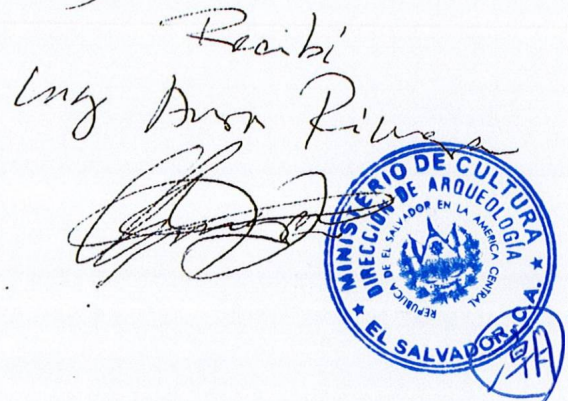 Recibí
Ing
MINISTERIO DE CULTURA
DIRECCIÓN DE ARQUEOLOGÍA
REPUBLICA DE EL SALVADOR EN LA AMERICA CENTRAL
★ EL SALVADOR, C.A. ★
潮